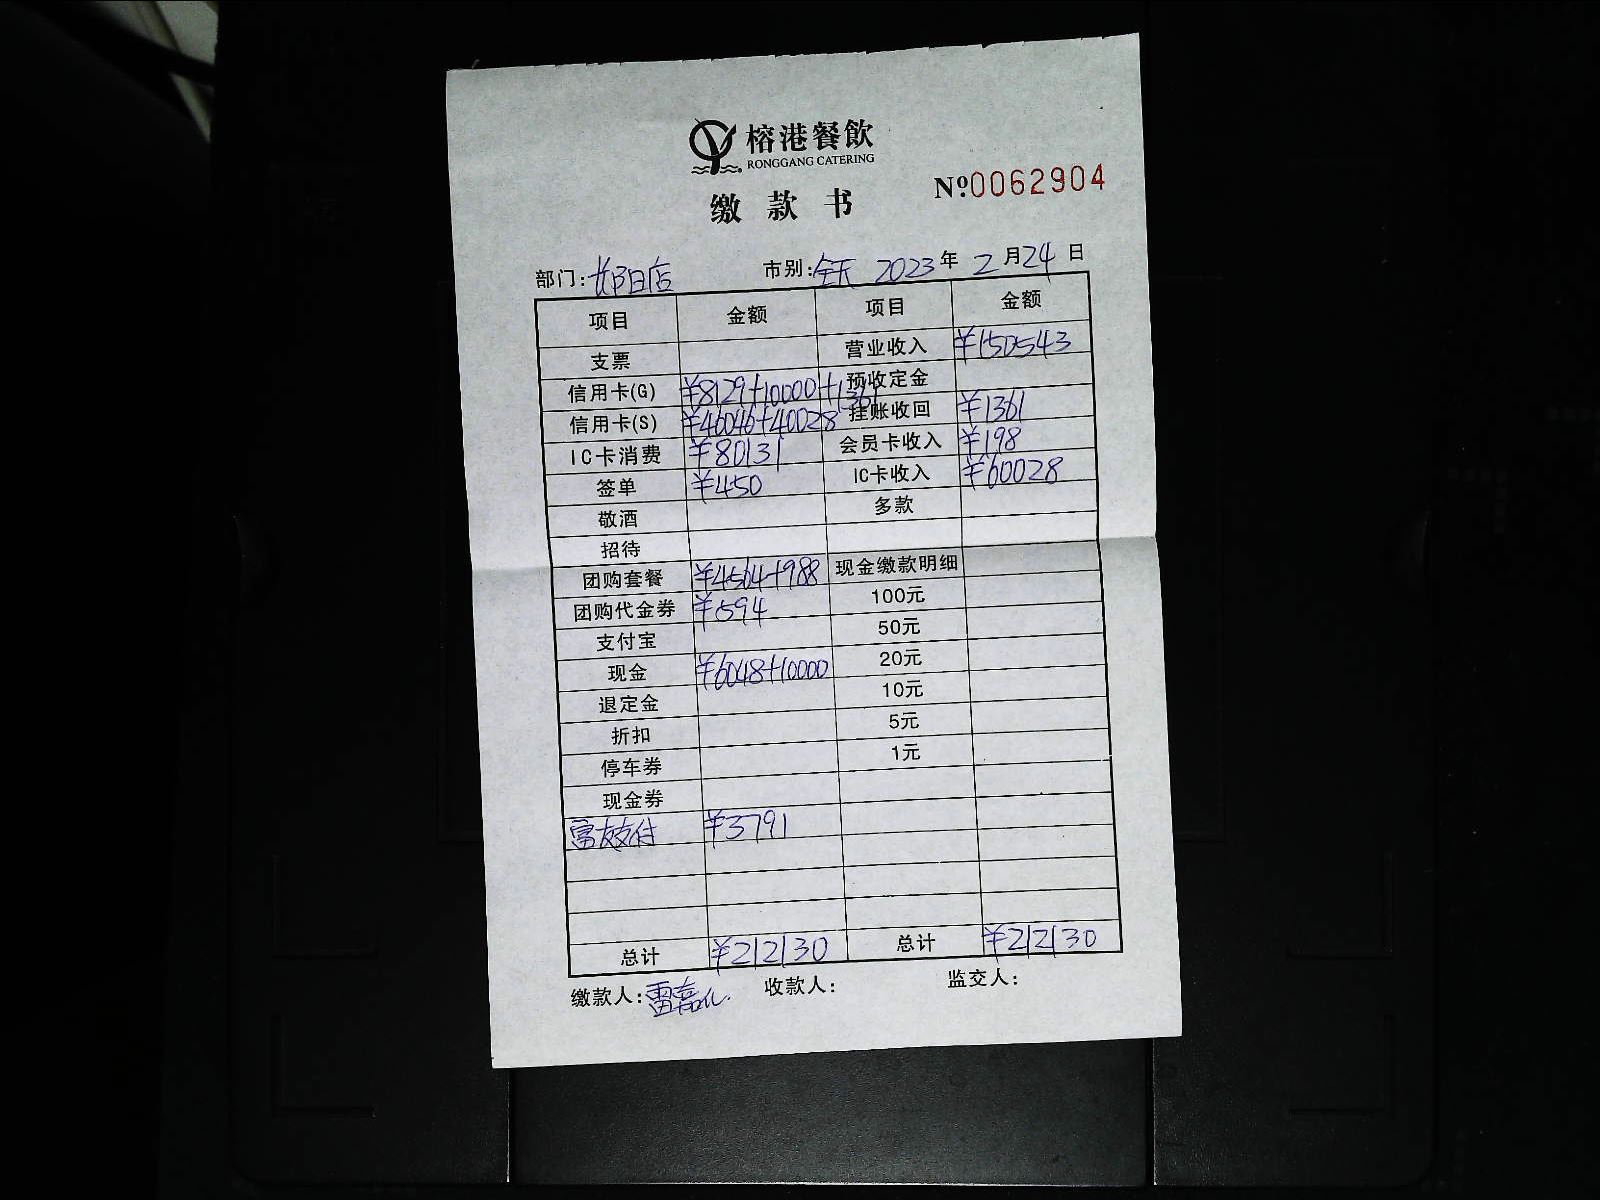 榕港餐飲
RONGGANG CATERING
缴款书
№0062904
部门: 店 市别:全天 2023年2月24日
项目 金额 项目 金额
支票 营业收入 ¥150543
信用卡(G) ¥8129+10000+1361 预收定金
信用卡(S) ¥46046+40028 挂账收回 ¥1361
IC卡消费 ¥80131 会员卡收入 ¥198
签单 ¥450 IC卡收入 ¥60028
敬酒 多款
招待
团购套餐 ¥4564+988 现金缴款明细
团购代金券 ¥594 100元
支付宝 50元
现金 ¥6048+10000 20元
退定金 10元
折扣 5元
停车券 1元
现金券
富友支付 ¥3791
总计 ¥212130 总计 ¥212130
缴款人:雷嘉 收款人: 监交人: